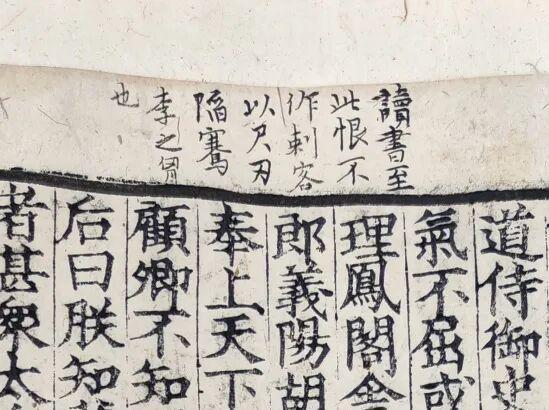 讀書至
此恨不
作刺客
以尺刃
陷騫
李之胷
也
道侍御史
氣不屈或
理鳳閣舍
郎義陽胡
奉上天下
顧卿不知
后曰朕知
者甚衆太